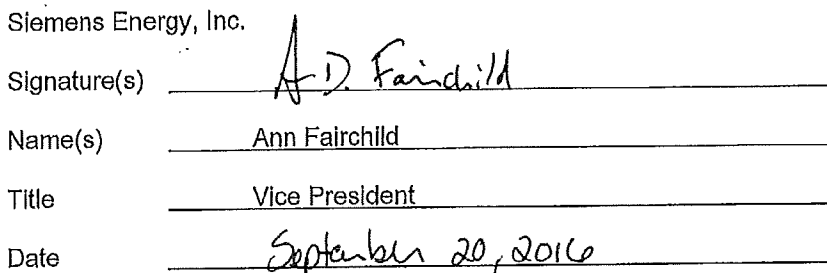 Siemens Energy, Inc.
Signature(s) A D. Fairchild
Name(s) Ann Fairchild
Title Vice President
Date September 20, 2016